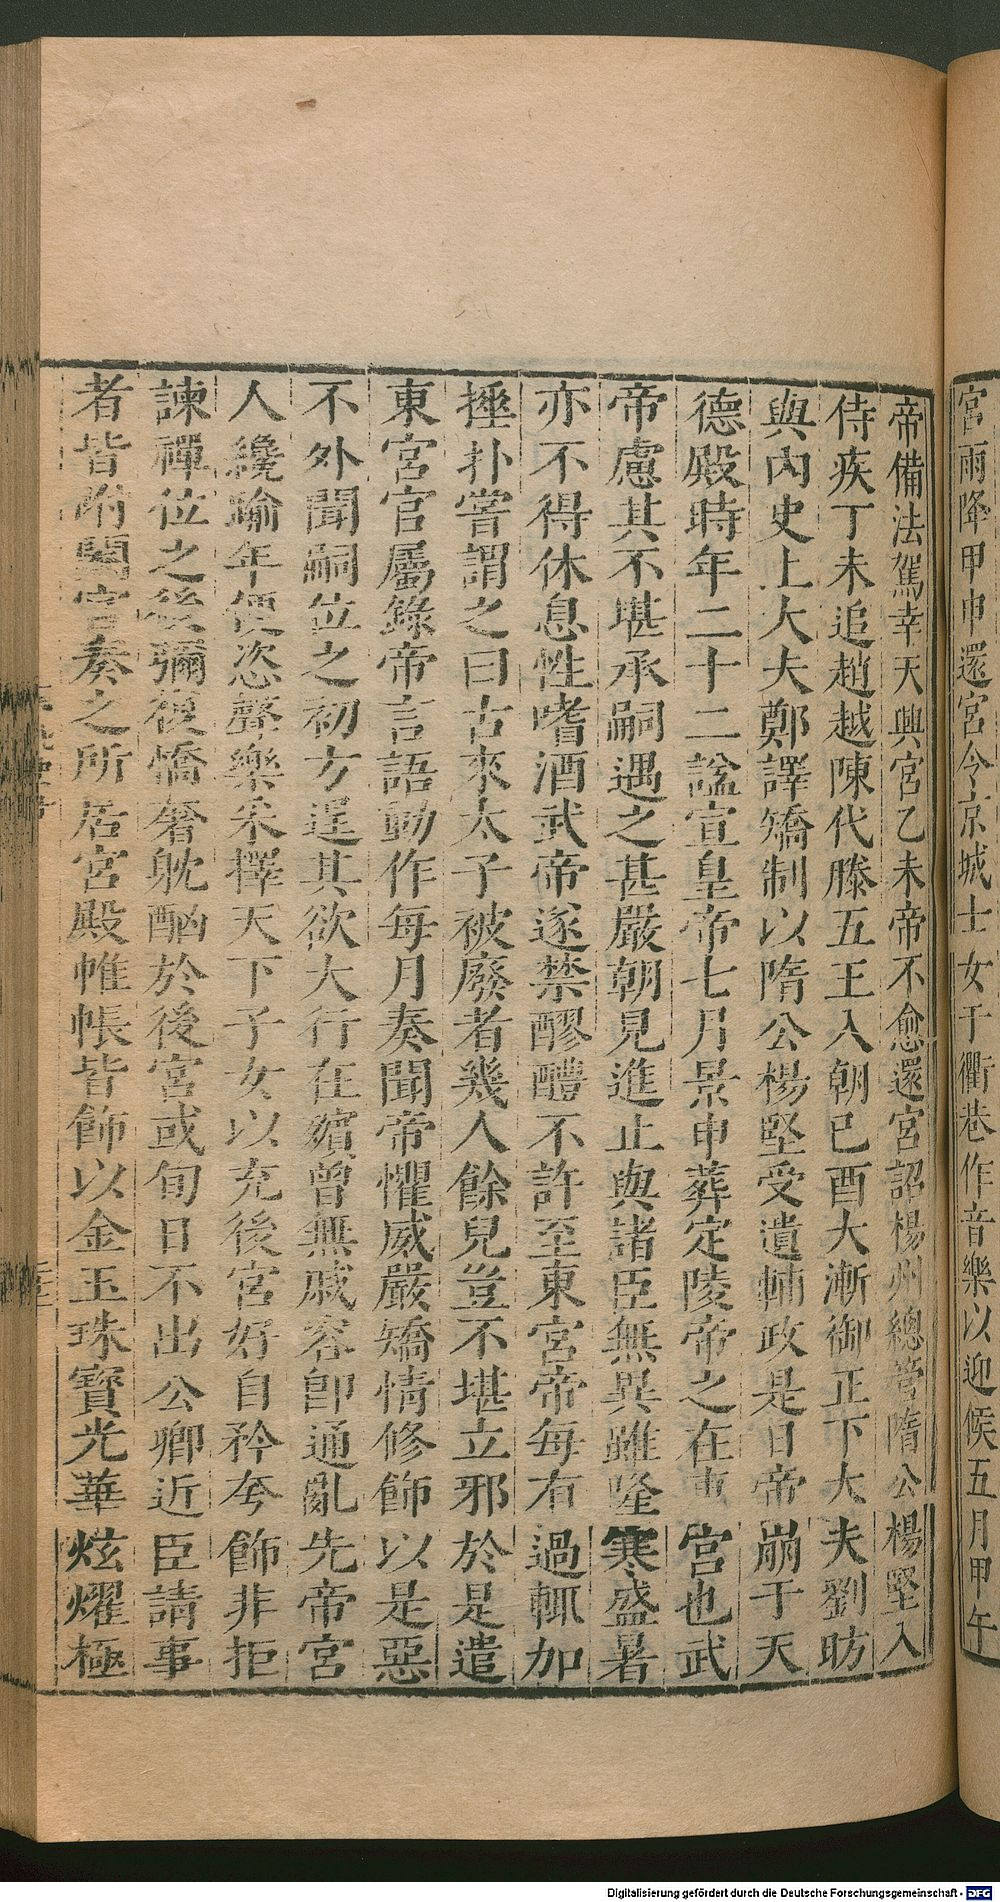 宮雨降甲申還宮令京城士女于衢巷作音樂以迎候五月甲午
帝備法駕幸天興宮乙未帝不愈還宮詔楊州總管隋公楊堅入
侍疾丁未追趙越陳代滕五王入朝已酉大漸御正下大夫劉昉
與內史上大夫鄭譯矯制以隋公楊堅受遺輔政是日帝崩于天
德殿時年二十二諡宣皇帝七月景申葬定陵帝之在東宮也武
帝慮其不堪承嗣遇之甚嚴朝見進止與諸臣無異雖隆寒盛暑
亦不得休息性嗜酒武帝遂禁醪醴不許至東宮帝每有過輒加
捶扑嘗謂之曰古來太子被廢者幾人餘兒豈不堪立邪於是遣
東宮官屬錄帝言語動作每月奏聞帝懼威嚴矯情修飾以是惡
不外聞嗣位之初方逞其欲大行在殯曾無戚容卽通亂先帝宮
人纔踰年便恣聲樂采擇天下子女以充後宮好自矜夸飾非拒
諫禪位之後彌復憍奢躭酗於後宮或旬日不出公卿近臣請事
者皆附閹官奏之所居宮殿帷帳皆飾以金玉珠寶光華炫燿極
Digitalisierung gefördert durch die Deutsche Forschungsgemeinschaft - DFG